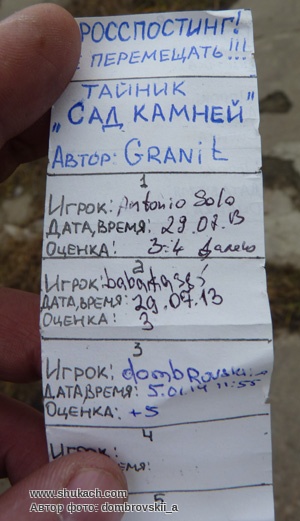 РОССПОСТИНГ!
ПЕРЕМЕЩАТЬ!!!
ТАЙНИК
„САД КАМНЕЙ"
АВТОР: GRANIt
1
ИГРОК: Antonio Solo
ДАТА, ВРЕМЯ: 29.07.13
ОЦЕНКА: 3:4
2
ИГРОК:
ДАТА, ВРЕМЯ: 29.07.13
ОЦЕНКА: 3
3
ИГРОК: dombrovski...
ДАТА ВРЕМЯ: 5.01.14 11:55
ОЦЕНКА: +5
4
ИГРОК:
ВРЕМЯ:
5
www.shukach.com
Автор фото: dombrovskii_a